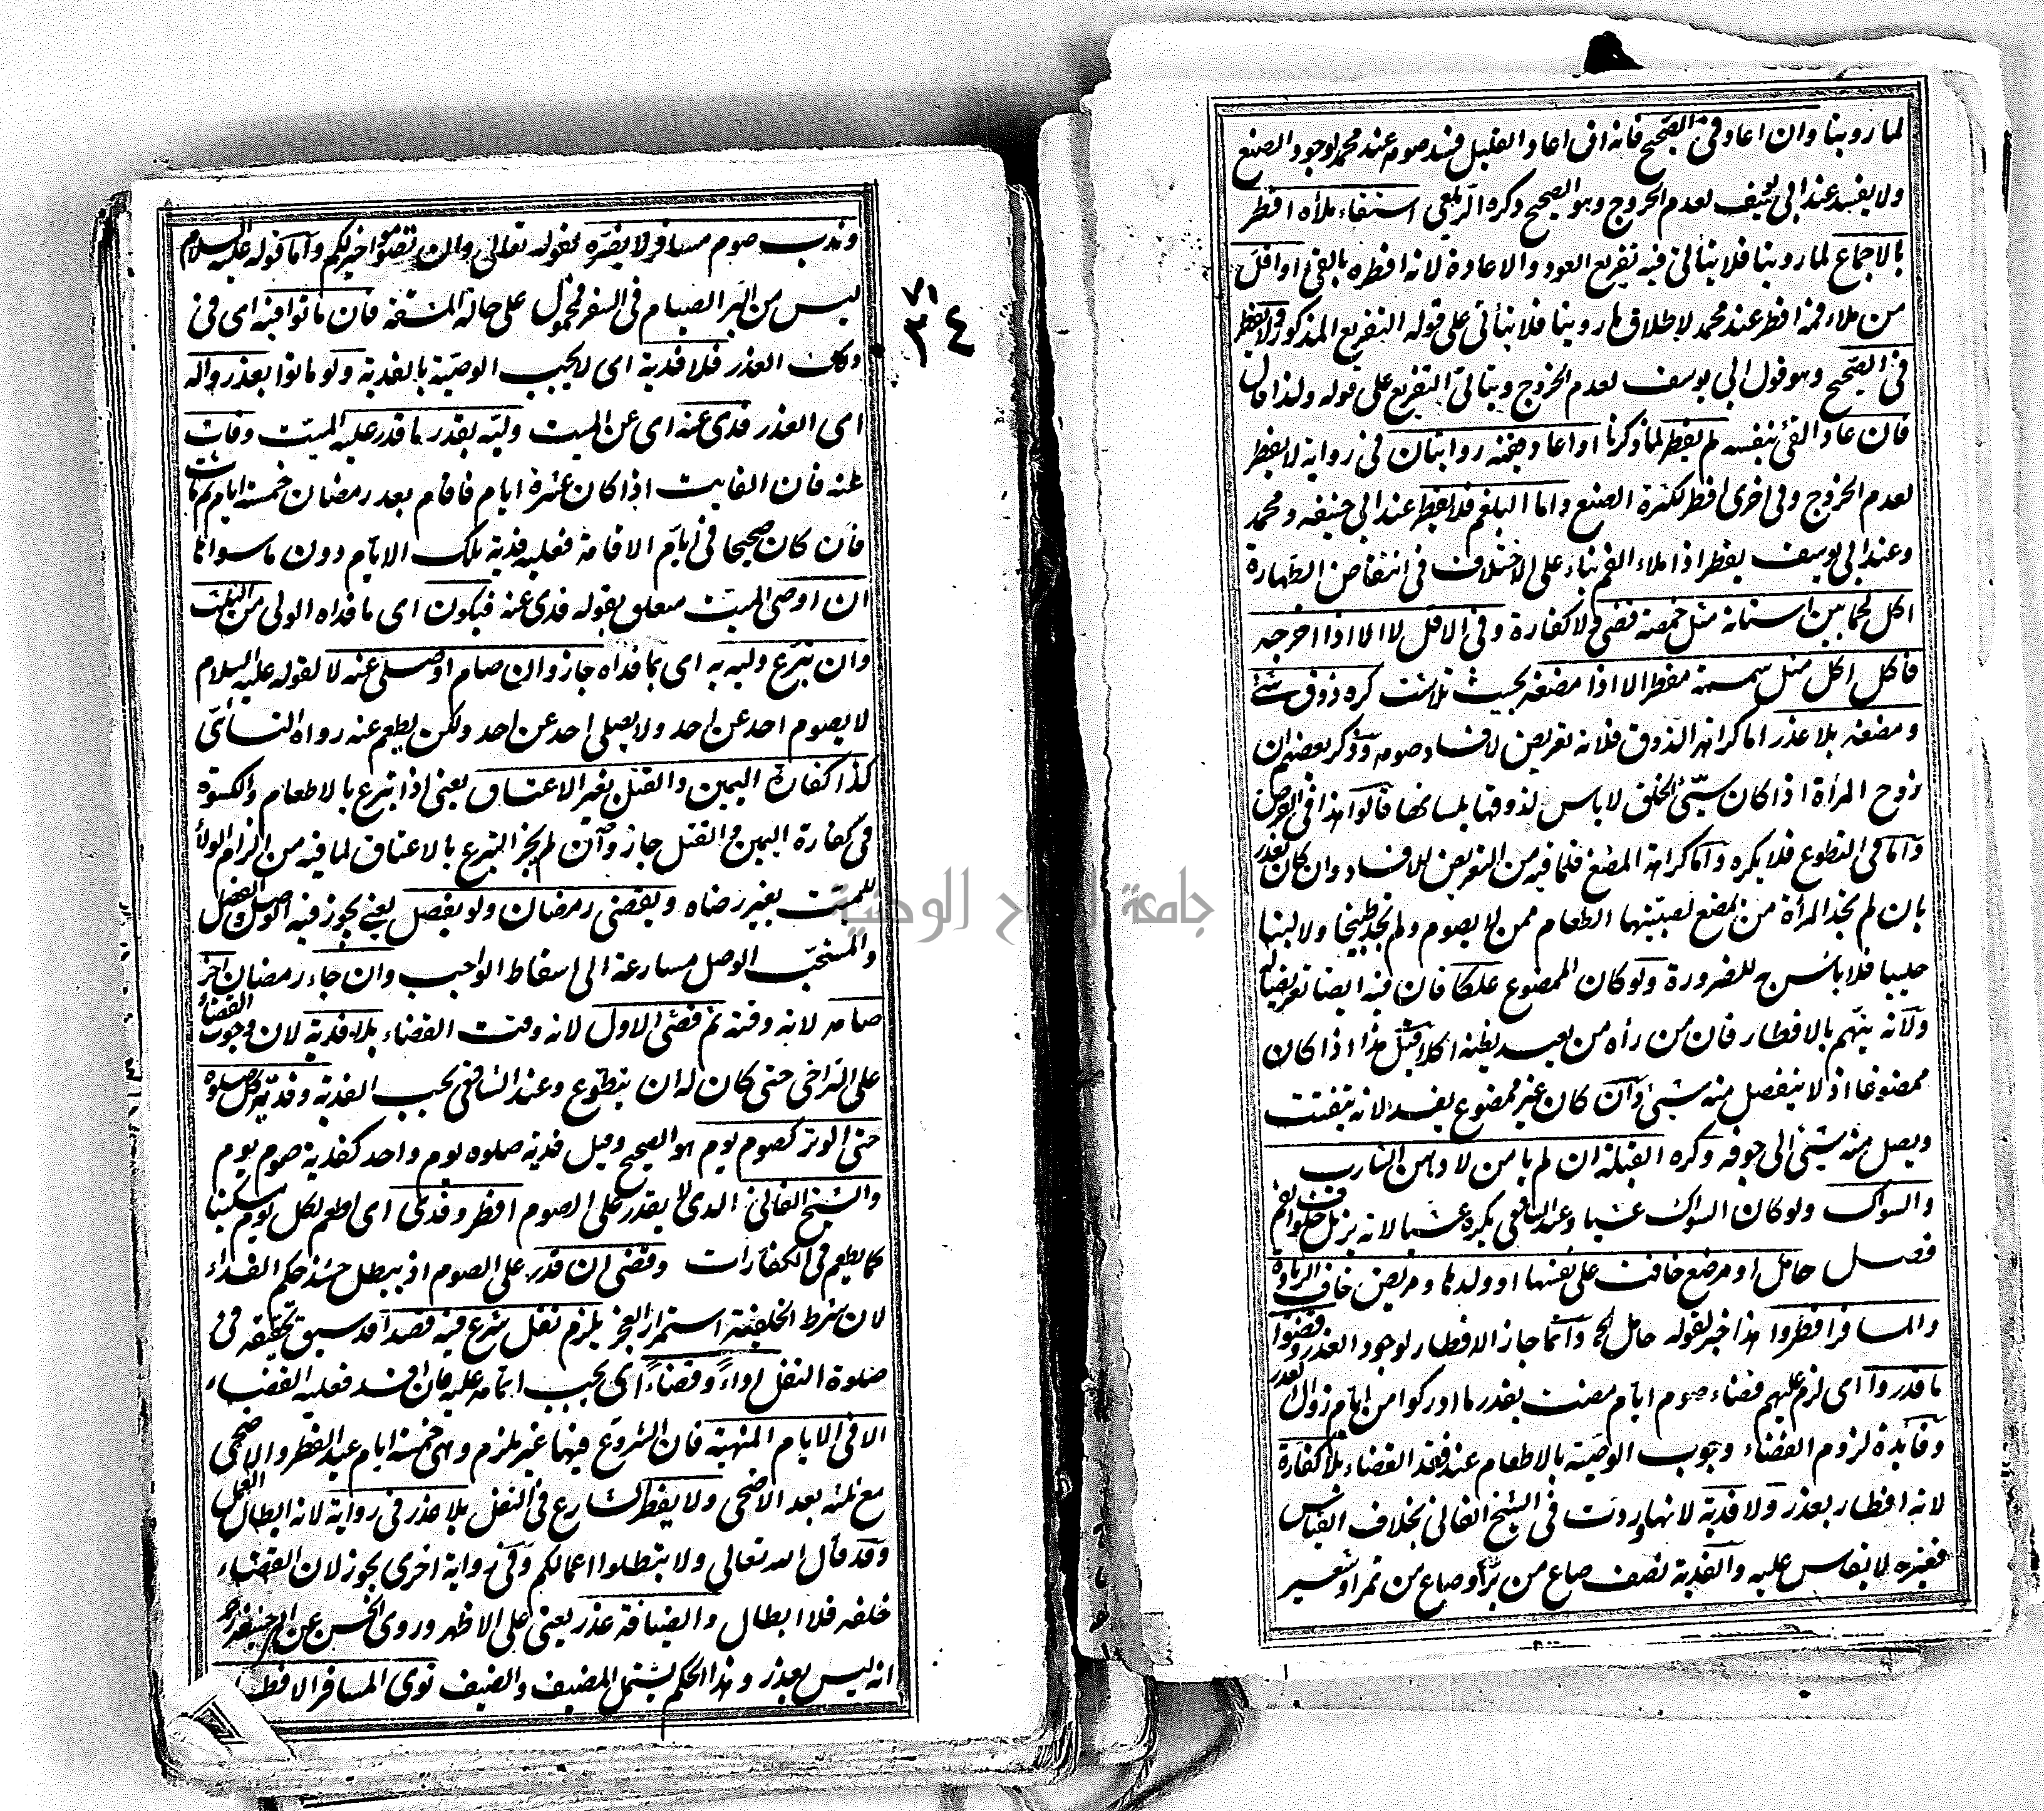 لما روينا وان اعاد ففى الصحيح فانه ان اعاد القليل فسد صومه عند محمد لوجود الصنع
ولا يفسد عند ابى يوسف لعدم الخروج وهو الصحيح ذكره الزيلعى استقاء ملأه افطر
بالاجماع لما روينا فلا يتأتى فيه تفريع العود والاعادة لانه افطره بالقئ او اقل
من ملاء فمه افطر عند محمد لاطلاق ما روينا فلا يتأتى على قوله التفريع المذكور ولا يفطر
فى الصحيح وهو قول ابى يوسف لعدم الخروج ويتأتى التفريع على قوله ولذا قال
فان عاد القئ بنفسه لم يفطر لما ذكرنا او اعاد ففيه روايتان فى رواية لا يفطر
لعدم الخروج وفى اخرى افطر لكثرة الصنع واما البلغم فلا يفطر عند ابى حنيفه ومحمد
وعند ابى يوسف يفطر اذا ملاء الفم بناء على الاختلاف فى انتقاض الطهارة
اكل لحما بين اسنانه مثل حمصة قضى لا كفارة وفى الاقل لا الا اذا اخرجه
فاكل اكل مثل سمسمة مفطر الا اذا مضغه بحيث تلاشت كره ذوق شئ
ومضغه بلا عذر اما كراهة الذوق فلانه تعريض لافساد صومه وذكر بعضهم ان
زوج المرأة اذا كان سيئ الخلق لا باس لذوقها بلسانها قالوا هذا فى الفرض
واما فى التطوع فلا يكره واما كراهة المضغ فلما فيه من التعريض للافساد وان كان لعذر
بان لم تجد المرأة من يمضغ لصبيتها الطعام ممن لا يصوم ولم تجد طبيخا ولا لبنا
حليبا فلا باس به للضرورة ولو كان الممضوغ علكا فان فيه ايضا تعريضا له
ولانه يتهم بالافطار فان من رأه من بعيد يظنه اكلا قيل هذا اذا كان
ممضوغا اذ لا ينفصل منه شئ وان كان غير ممضوغ يفسد لانه يتفتت
ويصل منه شئ الى جوفه وكره القبلة ان لم يأمن لا دهن الشارب
والسواك ولو كان السواك عشيا وعند الشافعى يكره عشيا لانه يزيل خلوف الفم
فصل حامل او مرضع خافت على نفسها او ولدها ومريض خاف الزيادة
والمسافر افطروا هذا خبر لقوله حامل الخ وانما جاز الافطار لوجود العذر وقضوا
ما قدروا اى لزم عليهم قضاء صوم ايام مضت بقدر ما ادركوا من ايام زوال العذر
وفائدة لزوم القضاء وجوب الوصية بالاطعام عند فقد القضاء بلا كفارة
لانه افطار بعذر ولا فدية لانها وردت فى الشيخ الفانى بخلاف القياس
فغيره لا يقاس عليه والفدية نصف صاع من بر او صاع من تمر او شعير
وندب صوم مسافر لا يضره لقوله تعالى وان تصوموا خير لكم واما قوله عليه السلام
ليس من البر الصيام فى السفر محمول على حالة المشقة فان ماتوا فيه اى فى
ذلك العذر فلا فدية اى لا يجب الوصية بالفدية ولو ماتوا بعد زواله
اى العذر فدى عنه اى عن الميت وليه بقدر ما قدر عليه الميت وفات
عنه فان الفايت اذا كان عشرة ايام فاقام بعد رمضان خمسة ايام ثم مات
فان كان صحيحا فى ايام الاقامة فعليه فدية تلك الايام دون ما سواها
ان اوصى الميت متعلق بقوله فدى عنه فيكون اى ما فداه الولى من الثلث
وان تبرع وليه به اى بما فداه جاز وان صام او صلى عنه لا لقوله عليه السلام
لا يصوم احد عن احد ولا يصلى احد عن احد ولكن يطعم عنه رواه النسائى
كذا كفارة اليمين والقتل بغير الاعتاق يعنى اذا تبرع بالاطعام والكسوة
فى كفارة اليمين والقتل جاز وان لم يجز التبرع بالاعتاق لما فيه من الزام الولاء
للميت بغير رضاه ويقضى رمضان ولو بفصل يعنى يجوز فيه الوصل والفصل
والمستحب الوصل مسارعة الى اسقاط الواجب وان جاء رمضان اخر
صامه لانه وقته ثم قضى الاول لانه وقت القضاء بلا فدية لان وجوب القضاء
على التراخى حتى كان له ان يتطوع وعند الشافعى يجب الفدية وفدية كل صلوة
حتى الوتر كصوم يوم هو الصحيح وقيل فدية صلوة يوم واحد كفدية صوم يوم
والشيخ الفانى الذى لا يقدر على الصوم افطر وفدى اى اطعم لكل يوم مسكينا
كما يطعم فى الكفارات وقضى ان قدر على الصوم اذ يبطل حينئذ حكم الفداء
لان شرط الخلفية استمرار العجز يلزم نفل شرع فيه قصدا قد سبق تحقيقه فى
صلوة النفل اداءً وقضاءً اى يجب اتمامه عليه فان افسد فعليه القضاء
الا فى الايام المنهية فان الشروع فيها غير ملزم وهى خمسة ايام عيد الفطر والاضحى
مع ثلثة بعد الاضحى ولا يفطر الشارع فى النفل بلا عذر فى رواية لانه ابطال العمل
وقد قال الله تعالى ولا تبطلوا اعمالكم وفى رواية اخرى يجوز لان القضاء
خلفه فلا ابطال والضيافة عذر يعنى على الاظهر وروى الحسن عن ابى حنيفة
انه ليس بعذر وهذا الحكم يشتمل المضيف والضيف نوى المسافر الافطار
٧١
٣٤
جامعة النجاح الوطنية